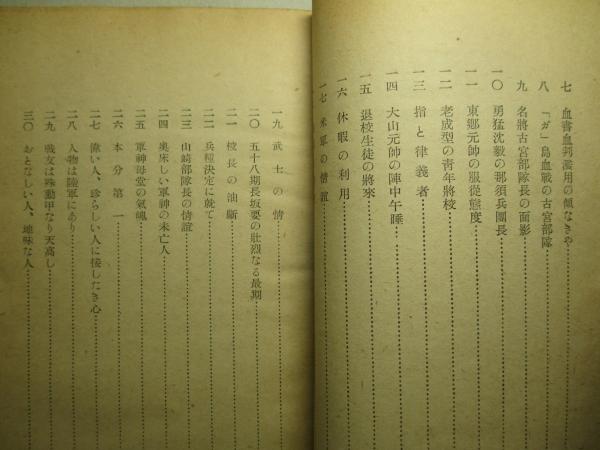 七 血書血判濫用の傾なきや
八 「ガ」島血戰の古宮部隊
九 名將古宮部隊長の面影
一〇 勇猛沈毅の那須兵團長
一一 東郷元帥の服從態度
一二 老成型の青年將校
一三 指と律義者
一四 大山元帥の陣中午睡
一五 退校生徒の將來
一六 休暇の利用
一七 米軍の情誼
一九 武士の情
二〇 五十八期長坂要の壯烈なる最期
二一 校長の油斷
二二 兵種決定に就て
二三 山崎部隊長の情誼
二四 奥床しい軍神の未亡人
二五 軍神母堂の氣魄
二六 本分第一
二七 偉い人、珍らしい人に接したき心
二八 人物は陸軍にあり
二九 戰友は殊動甲なり天高し
三〇 おとなしい人、地味な人